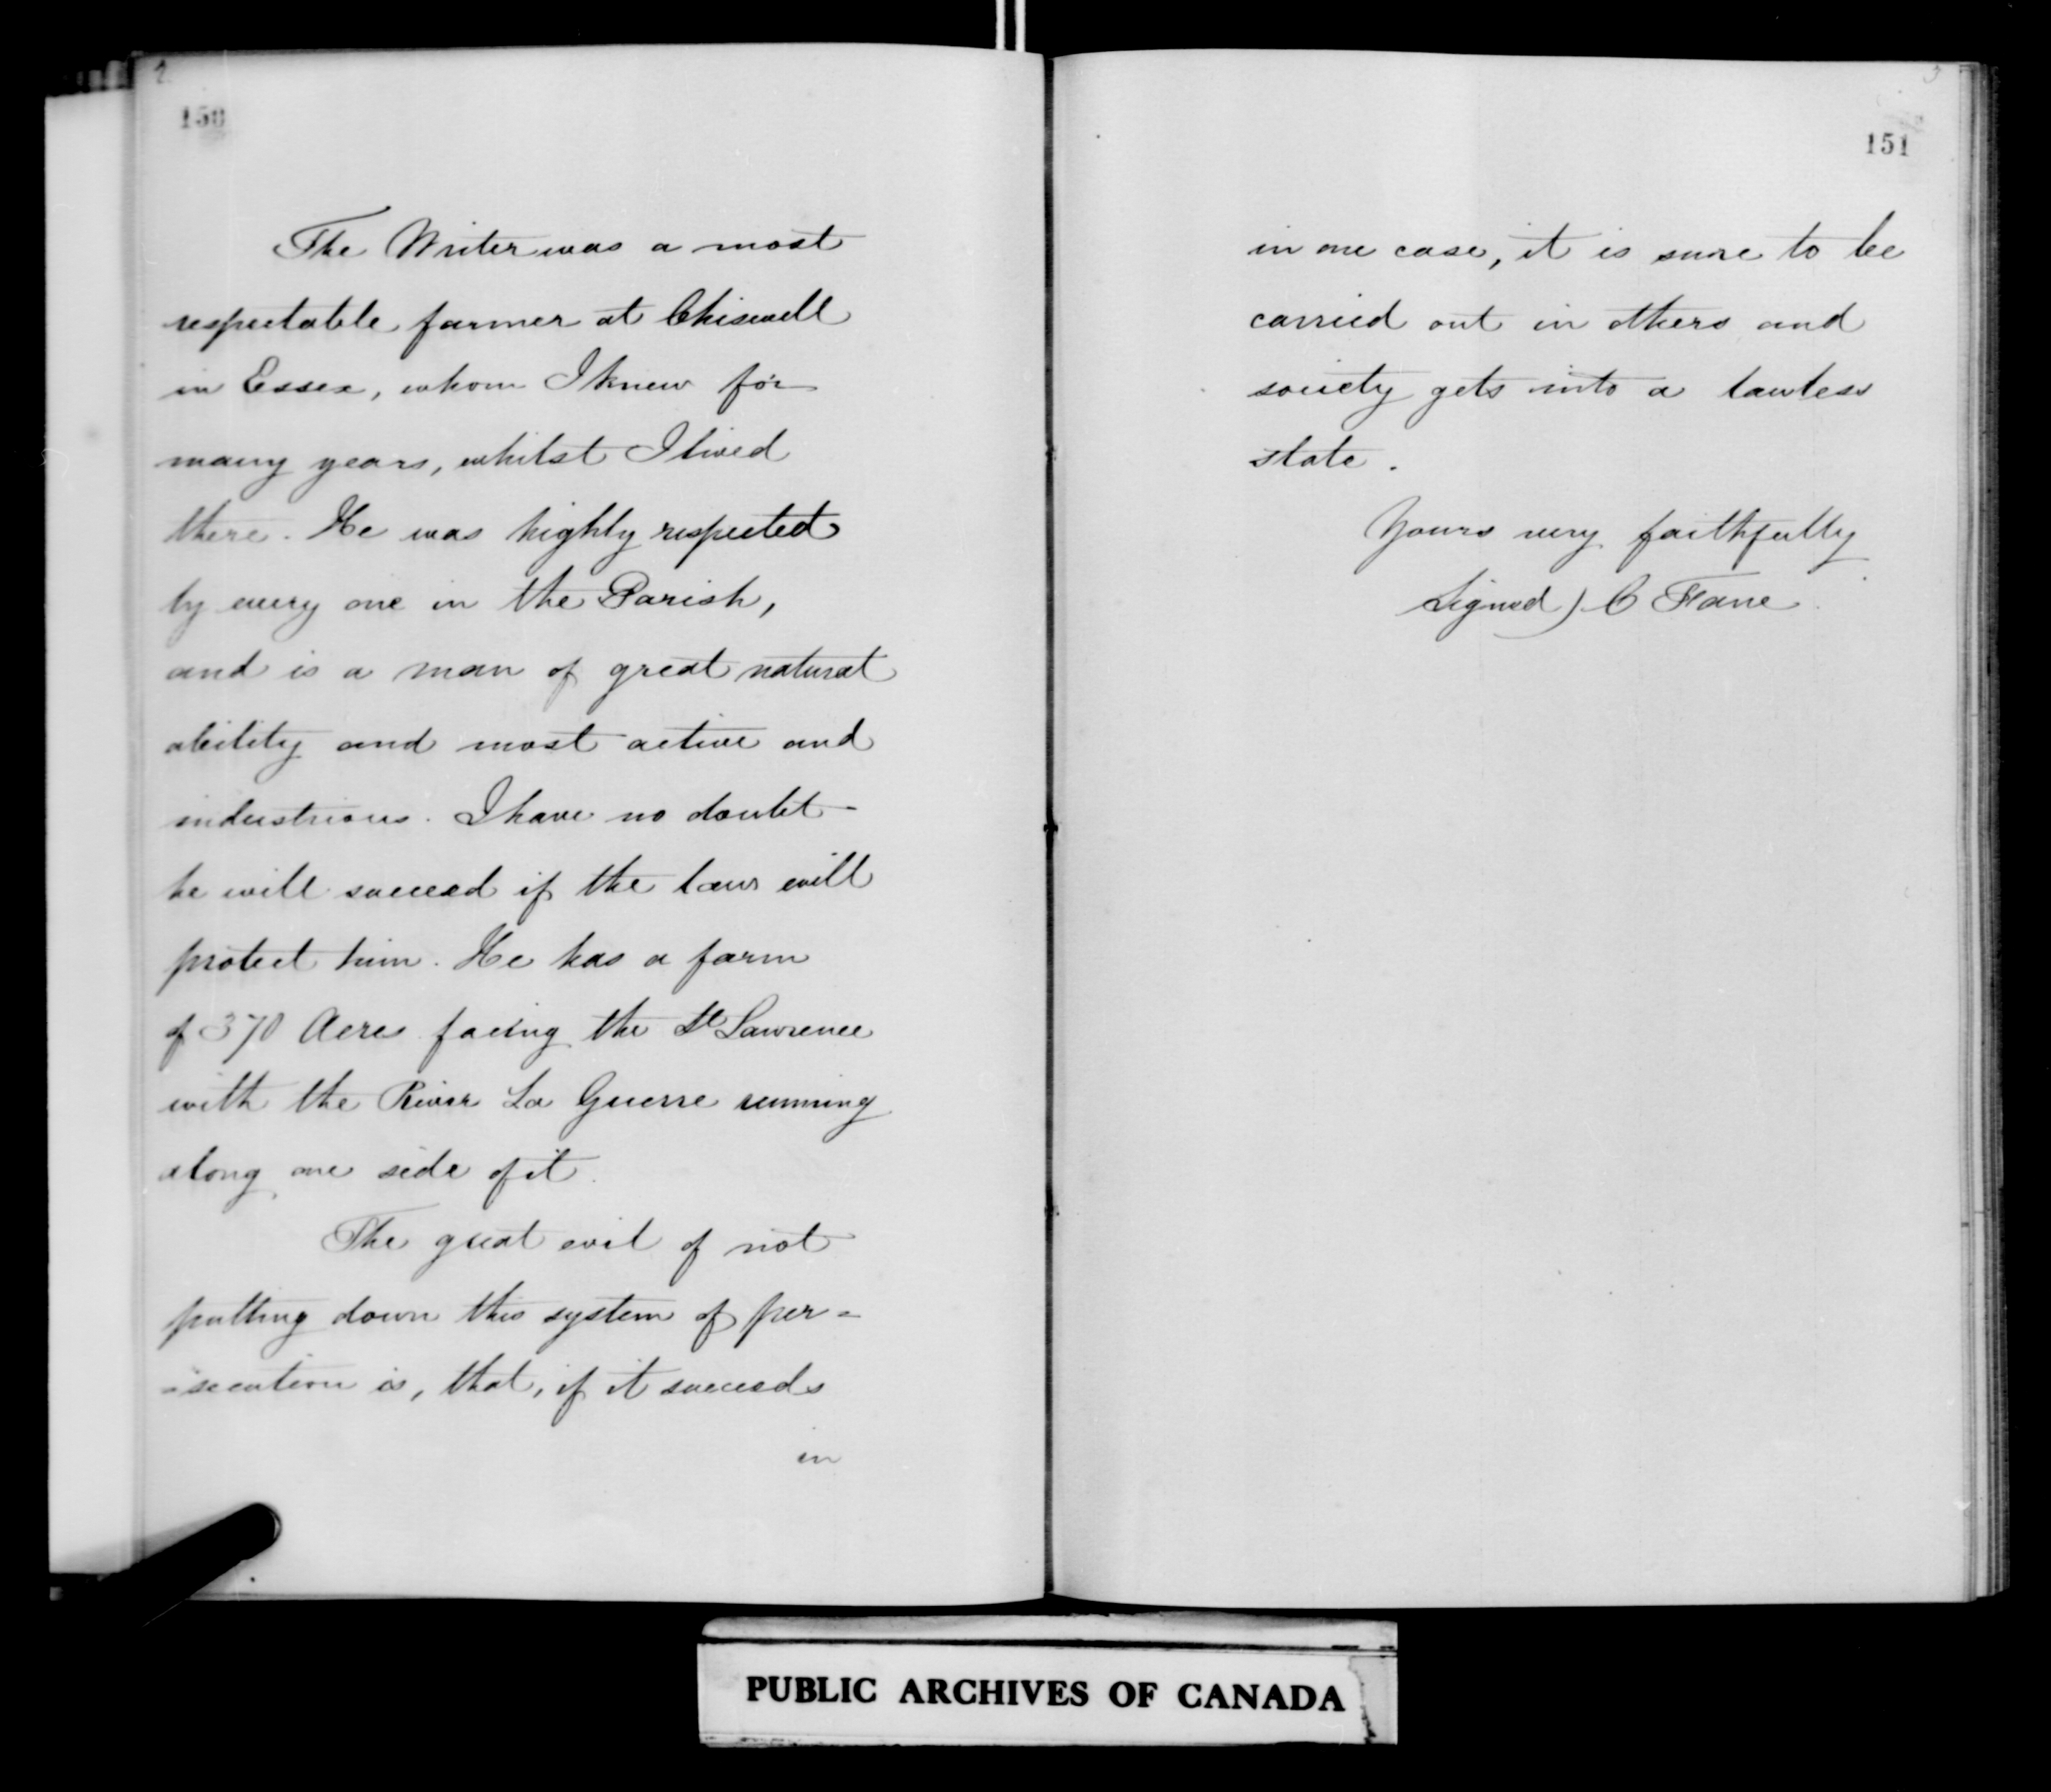 2
150
The Writer was a most
respectable farmer at Chiswell
in Essex, whom I knew for
many years, whilst I lived
there. He was highly respected
by every one in the Parish,
and is a man of great natural
ability and most active and
industrious. I have no doubt
he will succeed if the law will
protect him. He has a farm
of 370 Acres facing the St Lawrence
with the River La Guerre running
along one side of it.
The great evil of not
putting down this system of per=
=secution is, that, if it succeeds
in
3
151
in one case, it is sure to be
carried out in others and
society gets into a lawless
state.
Yours very faithfully
Signed) C Fane
PUBLIC ARCHIVES OF CANADA